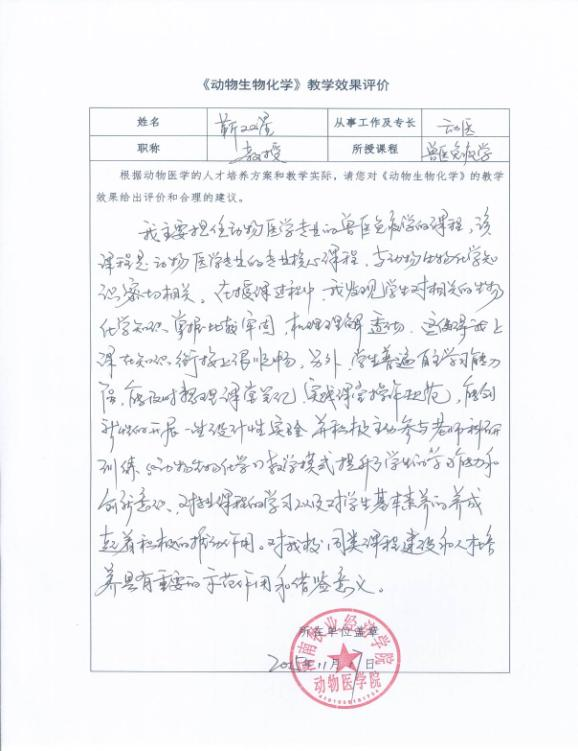 《动物生物化学》教学效果评价
姓名 从事工作及专长 动医
职称 教授 所授课程 兽医免疫学
根据动物医学的人才培养方案和教学实际，请您对《动物生物化学》的教学
效果给出评价和合理的建议。
我主要担任动物医学专业的兽医免疫学的课程，该
课程是动物医学专业的专业核心课程，与动物生物化学知
识密切相关。在授课过程中，我发现学生对相关的生物
化学知识掌握比较牢固，机理理解透彻，这使得我上
课在知识衔接上很顺畅。另外，学生普遍自主学习能力
强，能及时整理课堂笔记，实践课堂操作规范，能创
新性的开展一些设计性实验，并积极主动参与老师科研
训练。《动物生物化学》教学模式提升了学生的学习能力和
创新意识，对专业课程的学习以及对学生基本素养的养成
起着积极的推动作用。对我校同类课程建设和人才培
养具有重要的示范作用和借鉴意义。
所在单位盖章
2015年11月17日
河南牧业经济学院
动物医学院